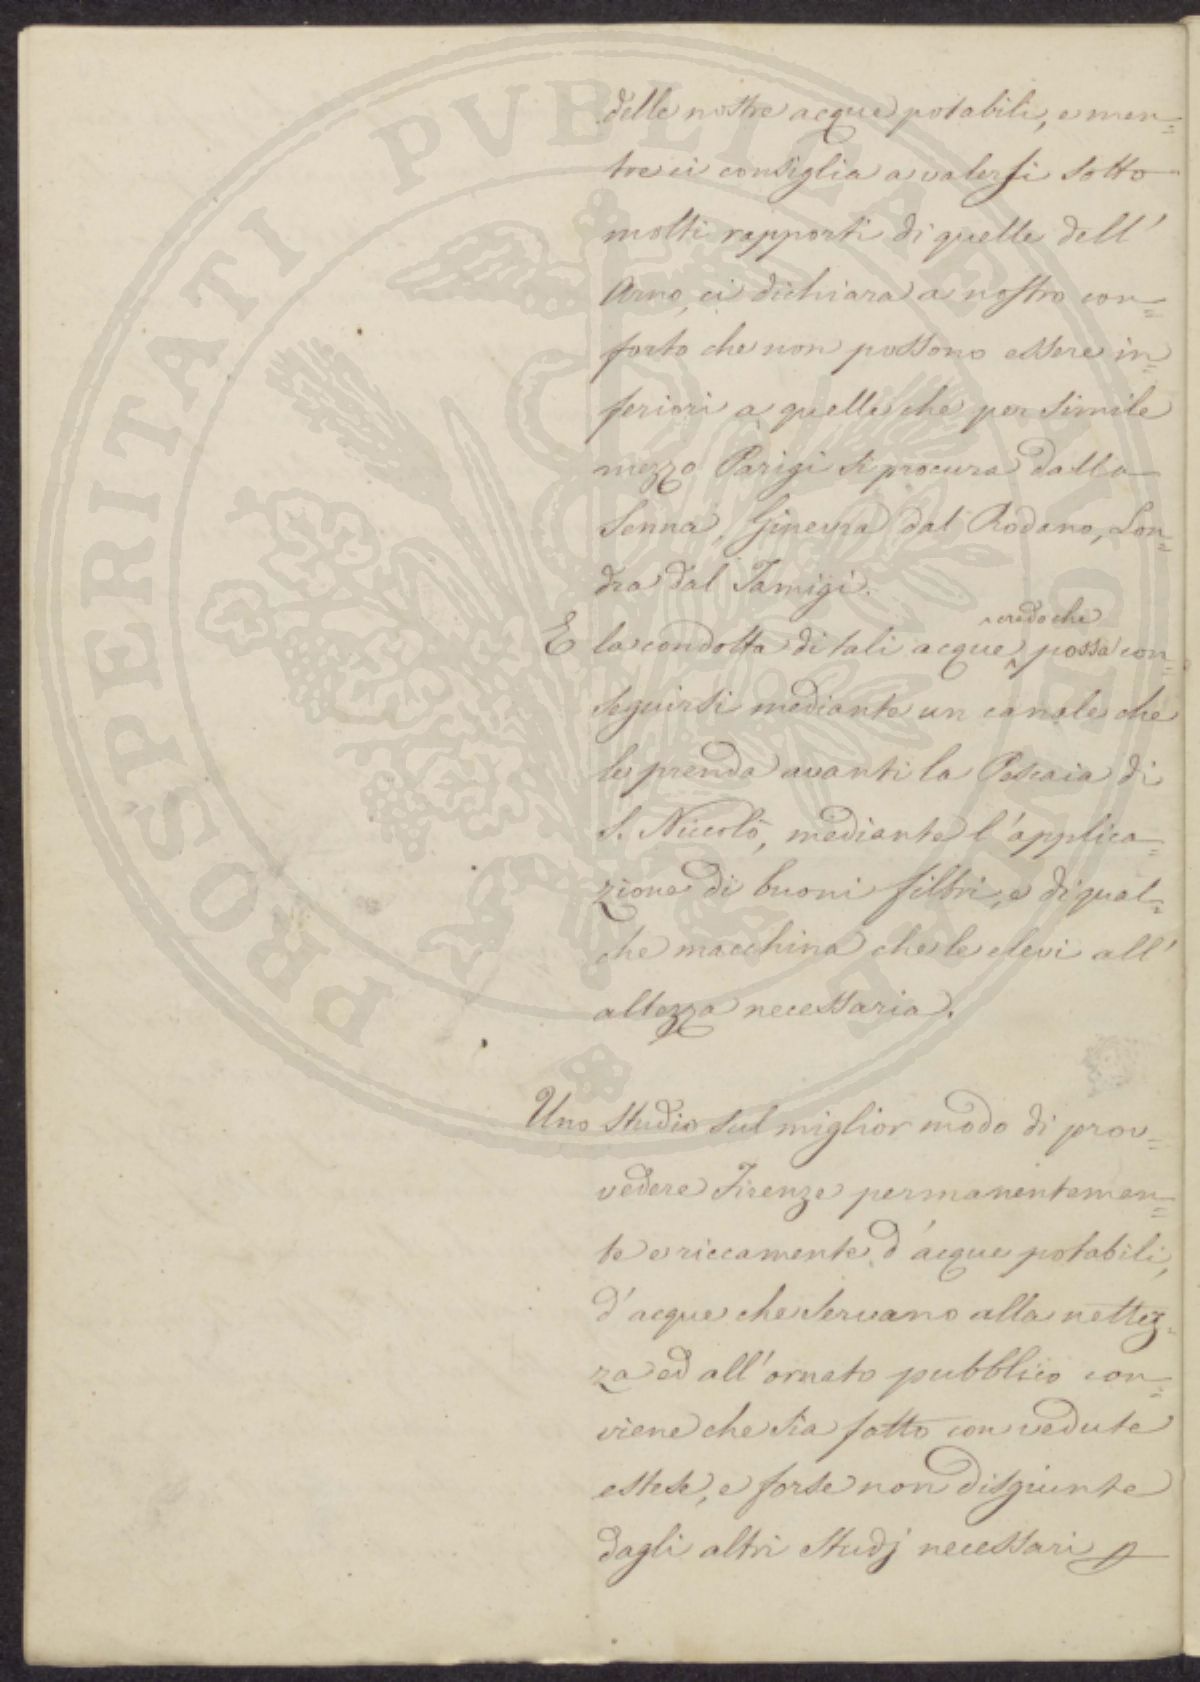 PROSPERITATI PUBLICAE AUGENDAE
delle nostre acque potabili, e men=
tre ci consiglia a valersi sotto
molti rapporti di quelle dell'
Arno, ci dichiara a nostro con=
forto che non possono essere in=
feriori a quelle che per simile
mezzo Parigi si procura dalla
Senna, Ginevra dal Rodano, Lon=
dra dal Tamigi.
credo che
E la condotta di tali acque possa con=
seguirsi mediante un canale che
le prenda avanti la Pescaia di
S. Niccolò, mediante l'applica=
zione di buoni filtri, e di qual=
che macchina che le elevi all'
altezza necessaria.
Uno studio sul miglior modo di prov=
vedere Firenze permanentemen=
te e riccamente d'acque potabili,
d'acque che servano alla nettez=
za ed all'ornato pubblico con=
viene che sia fatto con vedute
estese, e forse non disgiunte
dagli altri studj necessari p